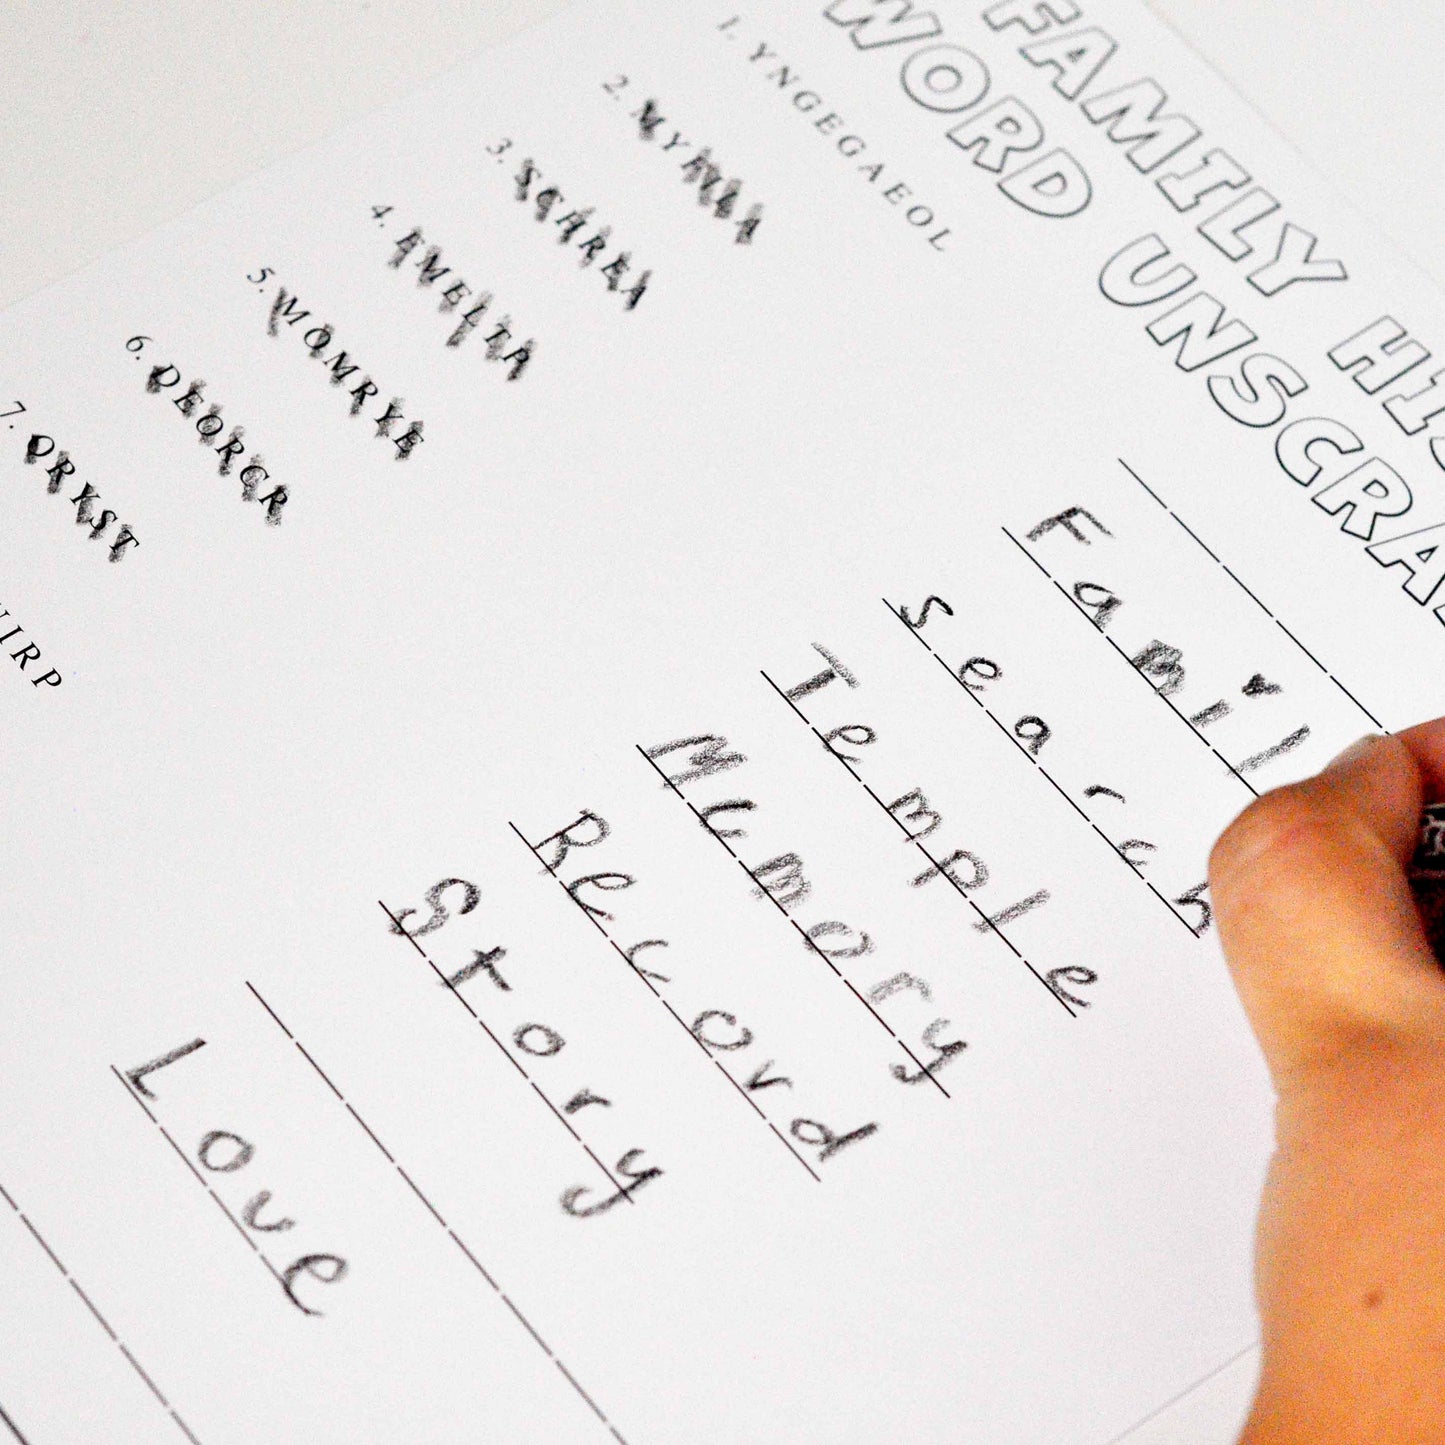 FAMILY HIS
WORD UNSCRA
1. YNGEGAEOL
2. MYFILA
3. SCHREA
4. EMELTP
5. MOMRYE
6. DEORCR
7. ORYST
IRP
Famil
search
Temple
Memory
Record
Story
Love